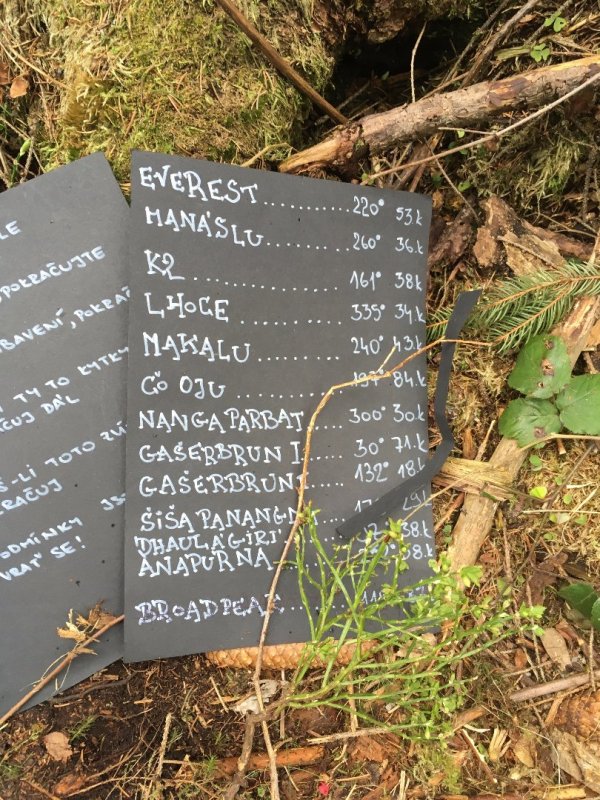 LE
POKRAČUJTE
BAVENÍ, POKRAČ
TY TO KYTKY
ČUJ DÁL
Š-LI TOTO
RAČUJ
ODMÍNKY JS
VRAŤ SE!
EVEREST 220° 53k
MANÁSLU 260° 36k
K2 161° 38k
LHOCE 335° 34k
MAKALU 240° 43k
ČO OJU 197° 84k
NANGAPARBAT 300° 30k
GAŠERBRUN I 30° 71k
GAŠERBRUN 132° 18k
ŠIŠAPANANGMA
DHAULÁGÍRÍ 38k
ANAPURNA
BROADPEAK